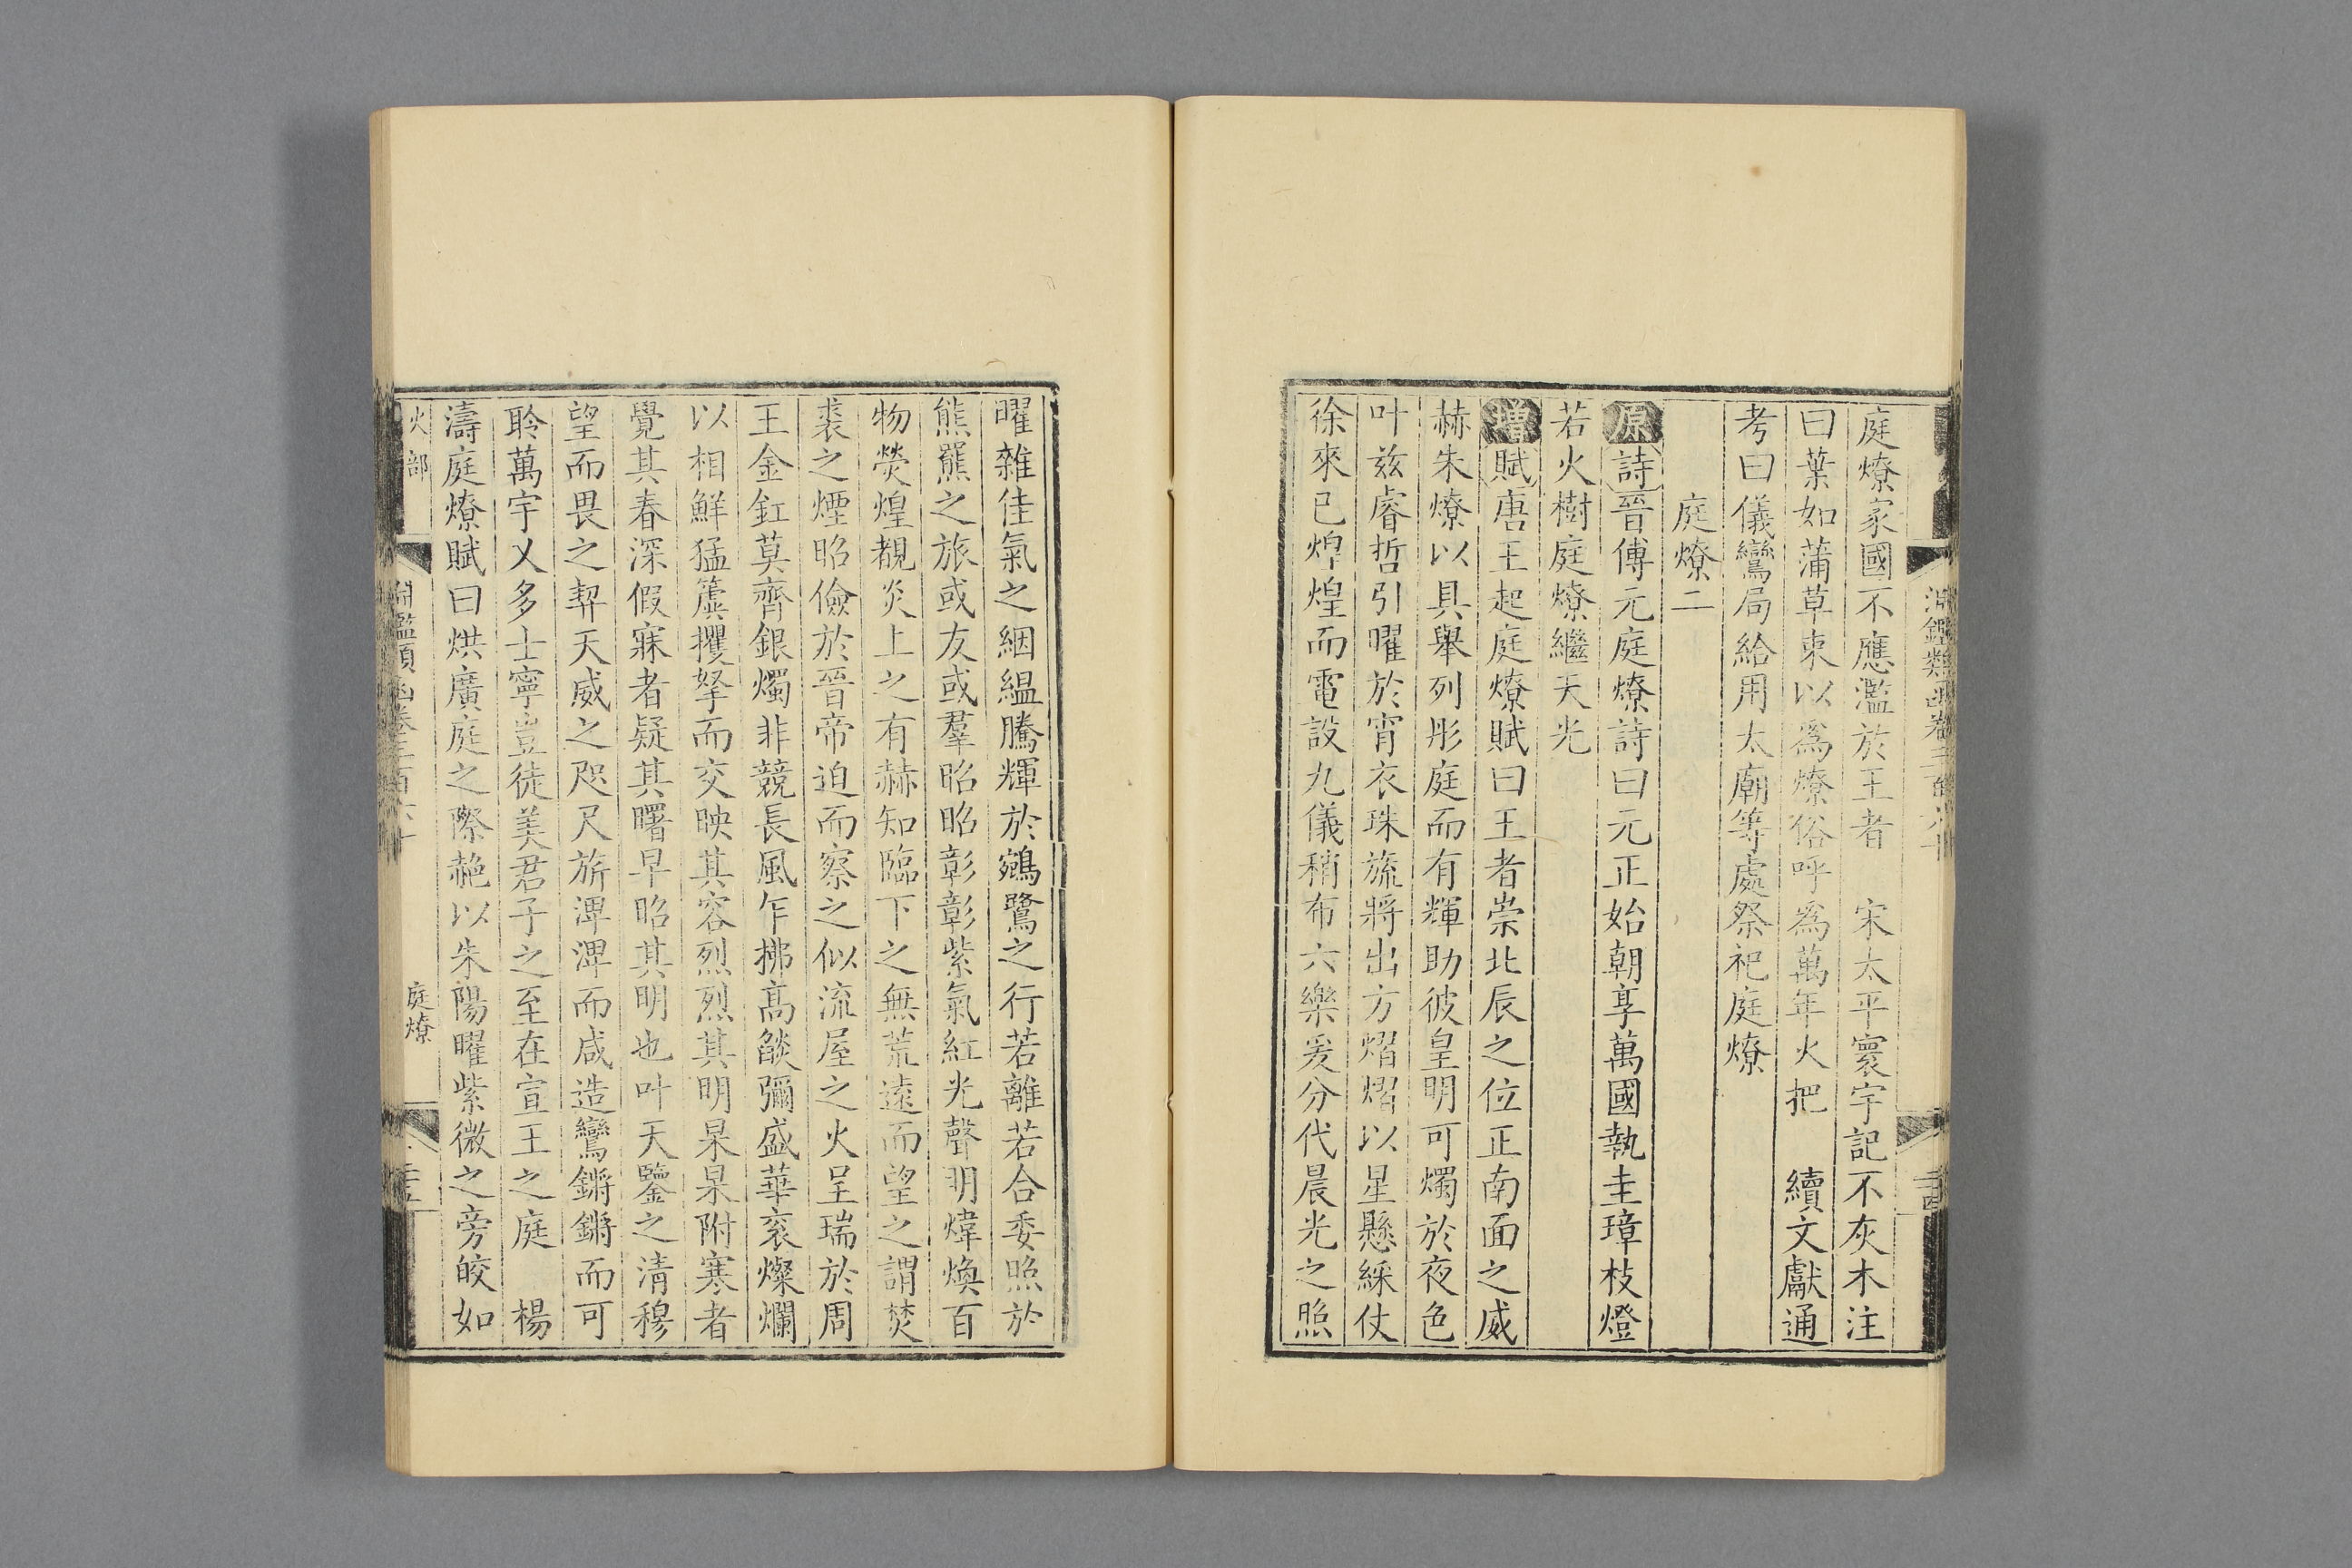 庭燎家國不應濫於王者　宋太平寰宇記不灰木注
曰葉如蒲草束以爲燎俗呼爲萬年火把　續文獻通
考曰儀鸞局給用太廟等處祭祀庭燎
庭燎二
原詩晉傅元庭燎詩曰元正始朝享萬國執圭璋枝燈
若火樹庭燎繼天光
增賦唐王起庭燎賦曰王者崇北辰之位正南面之威
赫朱燎以具舉列彤庭而有輝助彼皇明可燭於夜色
叶兹睿哲引曜於宵衣珠旒將出方熠熠以星懸綵仗
徐來已煌煌而電設九儀稍布六樂爰分代晨光之照
曜雜佳氣之絪縕騰輝於鵷鷺之行若離若合委照於
熊羆之旅或友或羣昭昭彰彰紫氣紅光聲明煒煥百
物熒煌覩炎上之有赫知臨下之無荒遠而望之謂焚
裘之煙昭儉於晉帝迫而察之似流屋之火呈瑞於周
王金釭莫齊銀燭非競長風乍拂高燄彌盛華衮燦爛
以相鮮猛簴攫拏而交映其容烈烈其明杲杲附寒者
覺其春深假寐者疑其曙早昭其明也叶天鑒之清穆
望而畏之契天威之咫尺旂潭潭而咸造鸞鏘鏘而可
聆萬宇乂多士寧豈徒美君子之至在宣王之庭　楊
濤庭燎賦曰烘廣庭之際赩以朱陽曜紫微之旁皎如
火部
淵鑑類函卷三百六十
庭燎